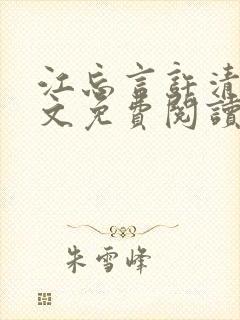 江忘言許清
文免費閱讀
朱雪峰